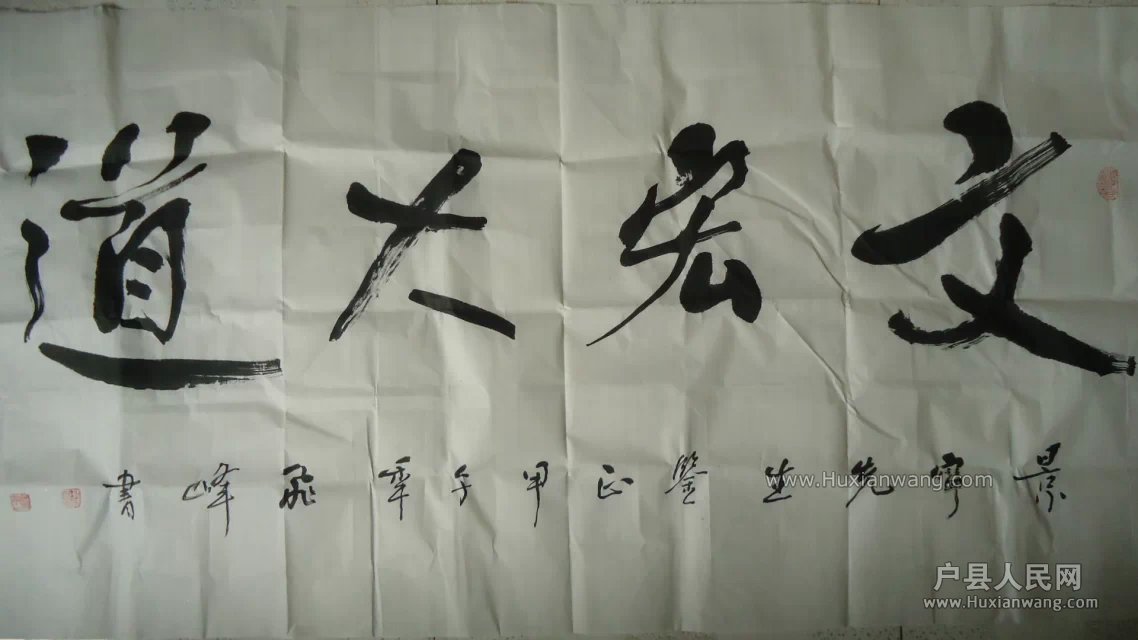 文宏大道
景宁先生鉴正甲午年飛峰書
www.Huxianwang.com
户县人民网
www.Huxianwang.com